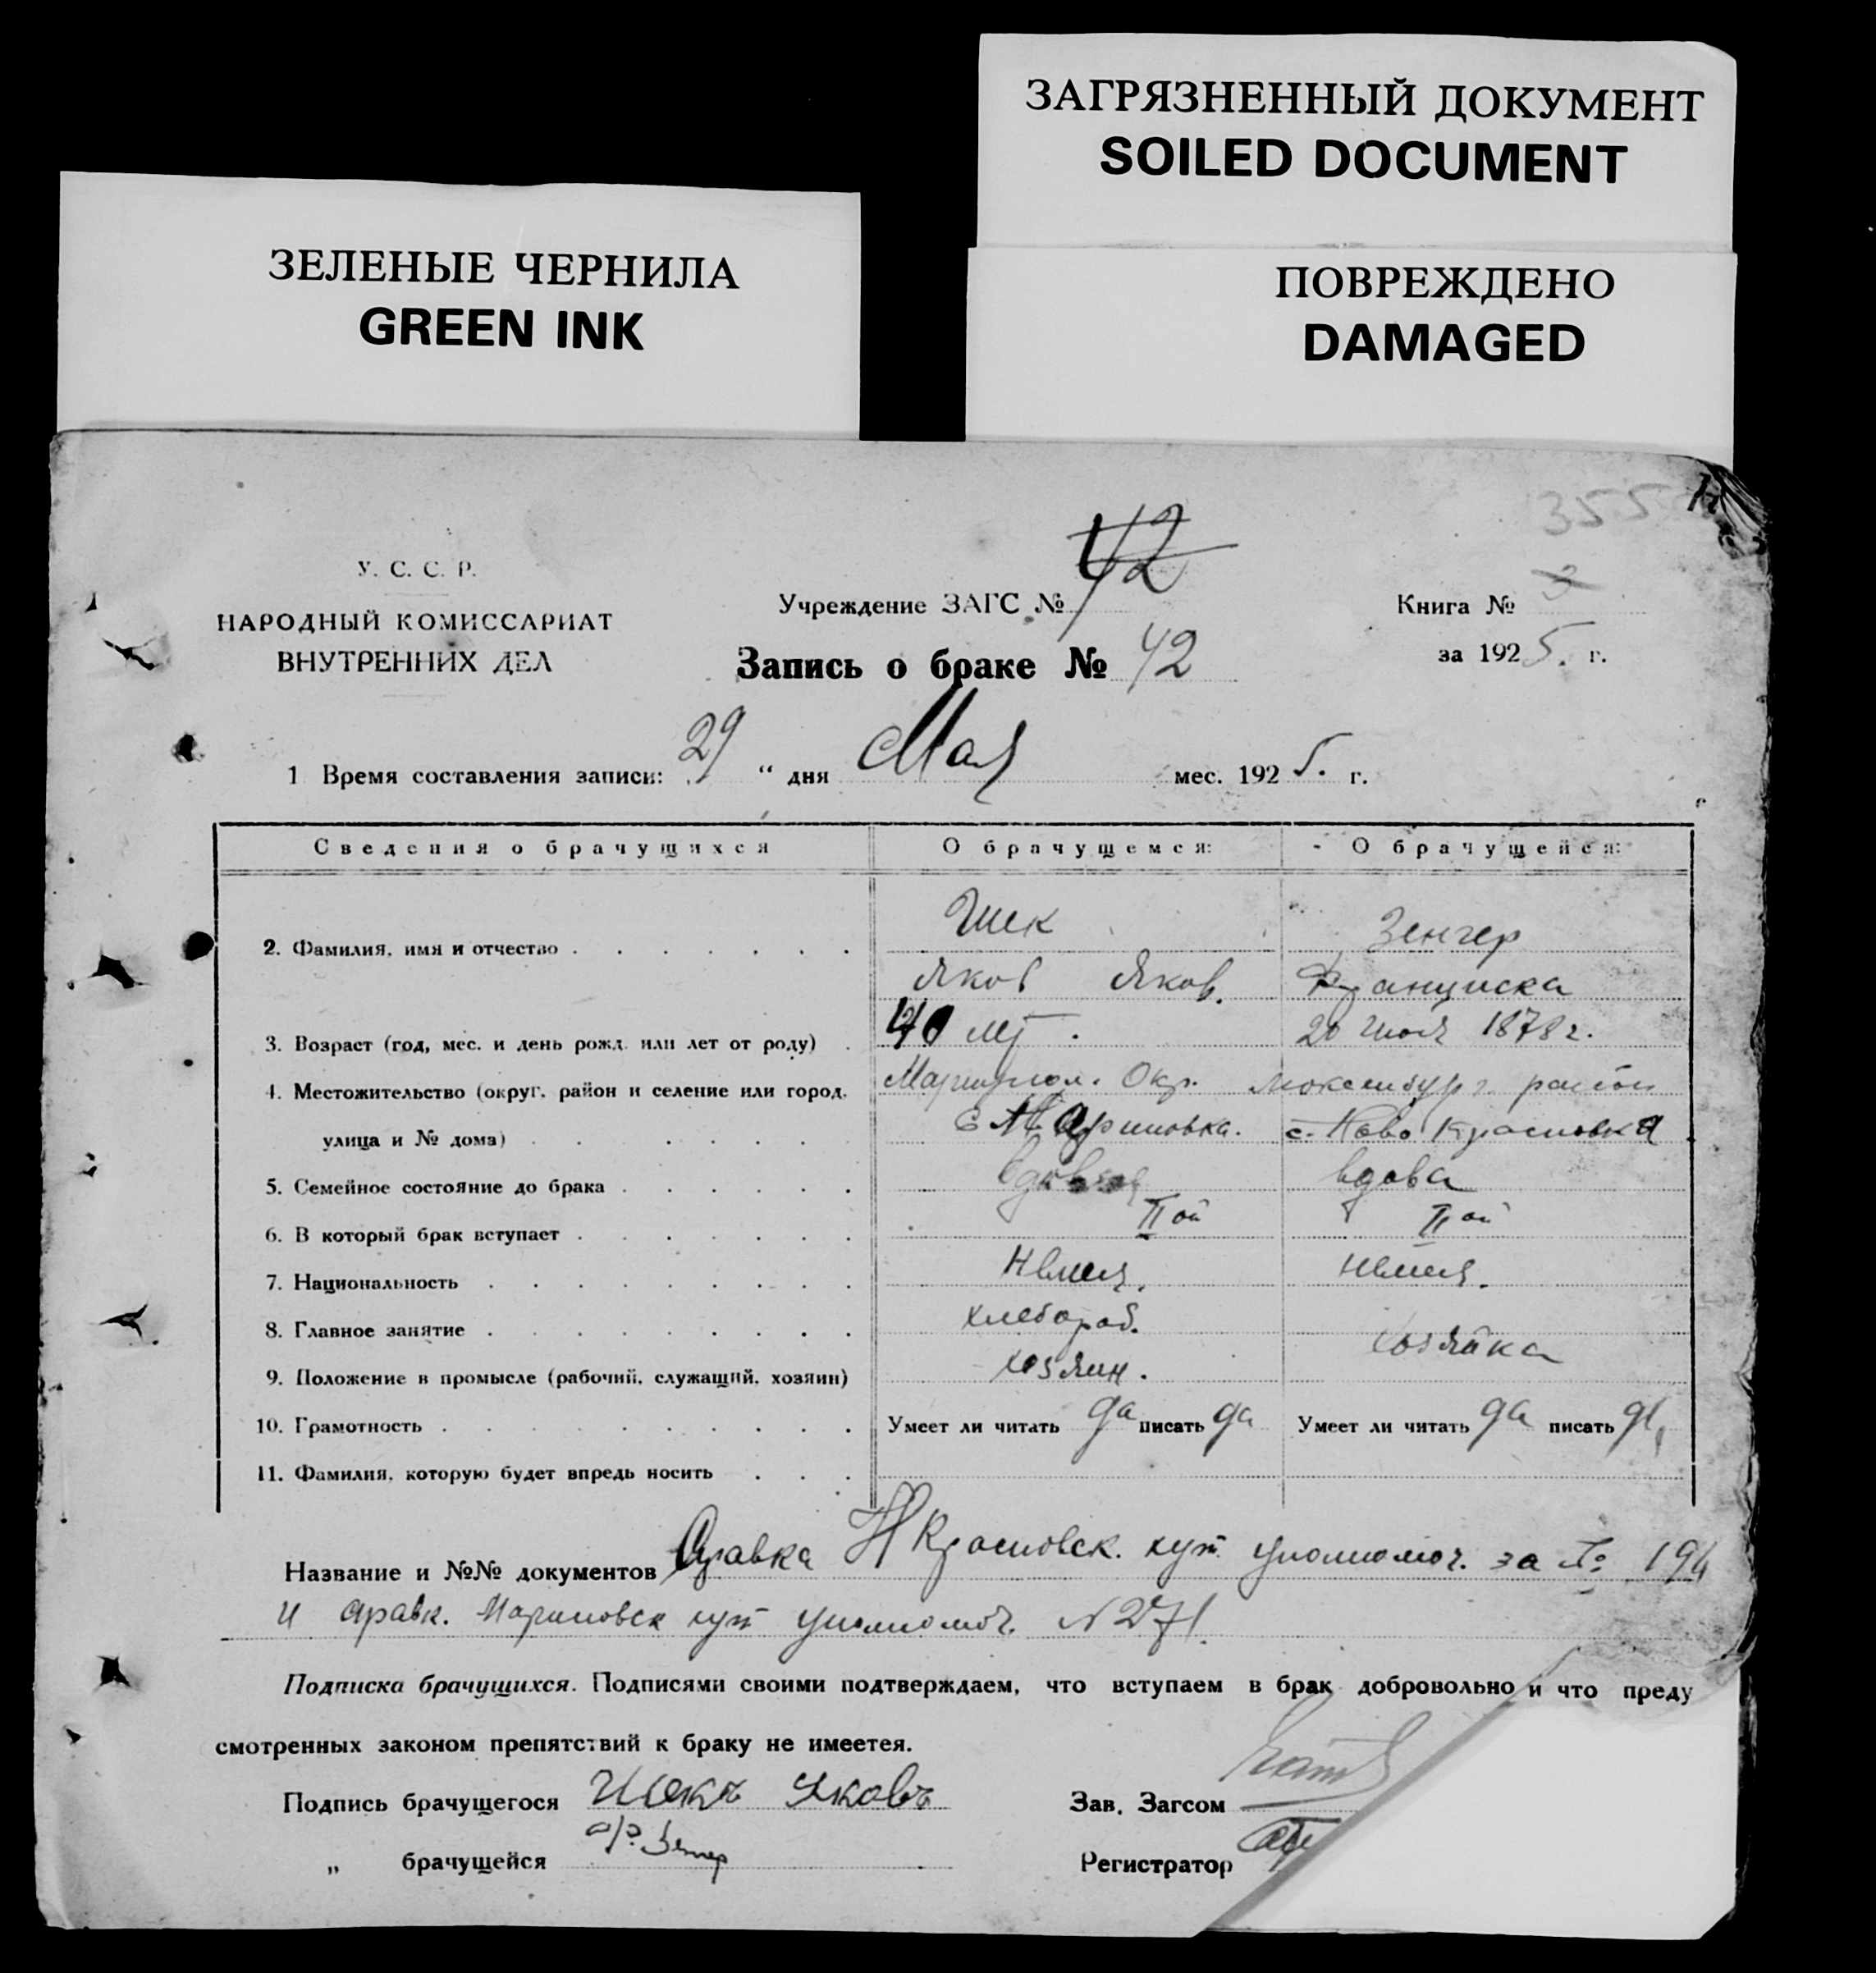 ЗАГРЯЗНЕННЫЙ ДОКУМЕНТ
SOILED DOCUMENT
ЗЕЛЕНЫЕ ЧЕРНИЛА
GREEN INK
ПОВРЕЖДЕНО
DAMAGED
355
У. С. С. Р.
НАРОДНЫЙ КОМИССАРИАТ
ВНУТРЕННИХ ДЕЛ
Учреждение ЗАГС № 42
Книга №
Запись о браке № 42
за 1925. г.
1 Время составления записи: 29 " дня Мая мес. 1925. г.
Сведения о брачущихся О брачущемся: О брачущейся:
2. Фамилия, имя и отчество Шек Зенгер
Яков Яков. Франциска
3. Возраст (год, мес. и день рожд. или лет от роду) 40 лет. 20 Июля 1878 г.
4. Местожительство (округ, район и селение или город, Мариупол. Окр. Люксембург. район
улица и № дома) с Мариновка. с. Ново Красновка
5. Семейное состояние до брака вдова
6. В который брак вступает II ой II ой
7. Национальность
8. Главное занятие хлебороб.
9. Положение в промысле (рабочий, служащий, хозяин) хозяин. хозяйка
10. Грамотность Умеет ли читать да писать да Умеет ли читать да писать да
11. Фамилия, которую будет впредь носить
Название и №№ документов Справка Н Красновск. хут. уполномоч. за № 194
и справк. Мариновск хут уполномоч. N 271.
Подписка брачущихся. Подписями своими подтверждаем, что вступаем в брак добровольно и что преду
смотренных законом препятствий к браку не имеетея.
Подпись брачущегося Шекъ Яковъ Зав. Загсом
„ брачущейся Регистратор